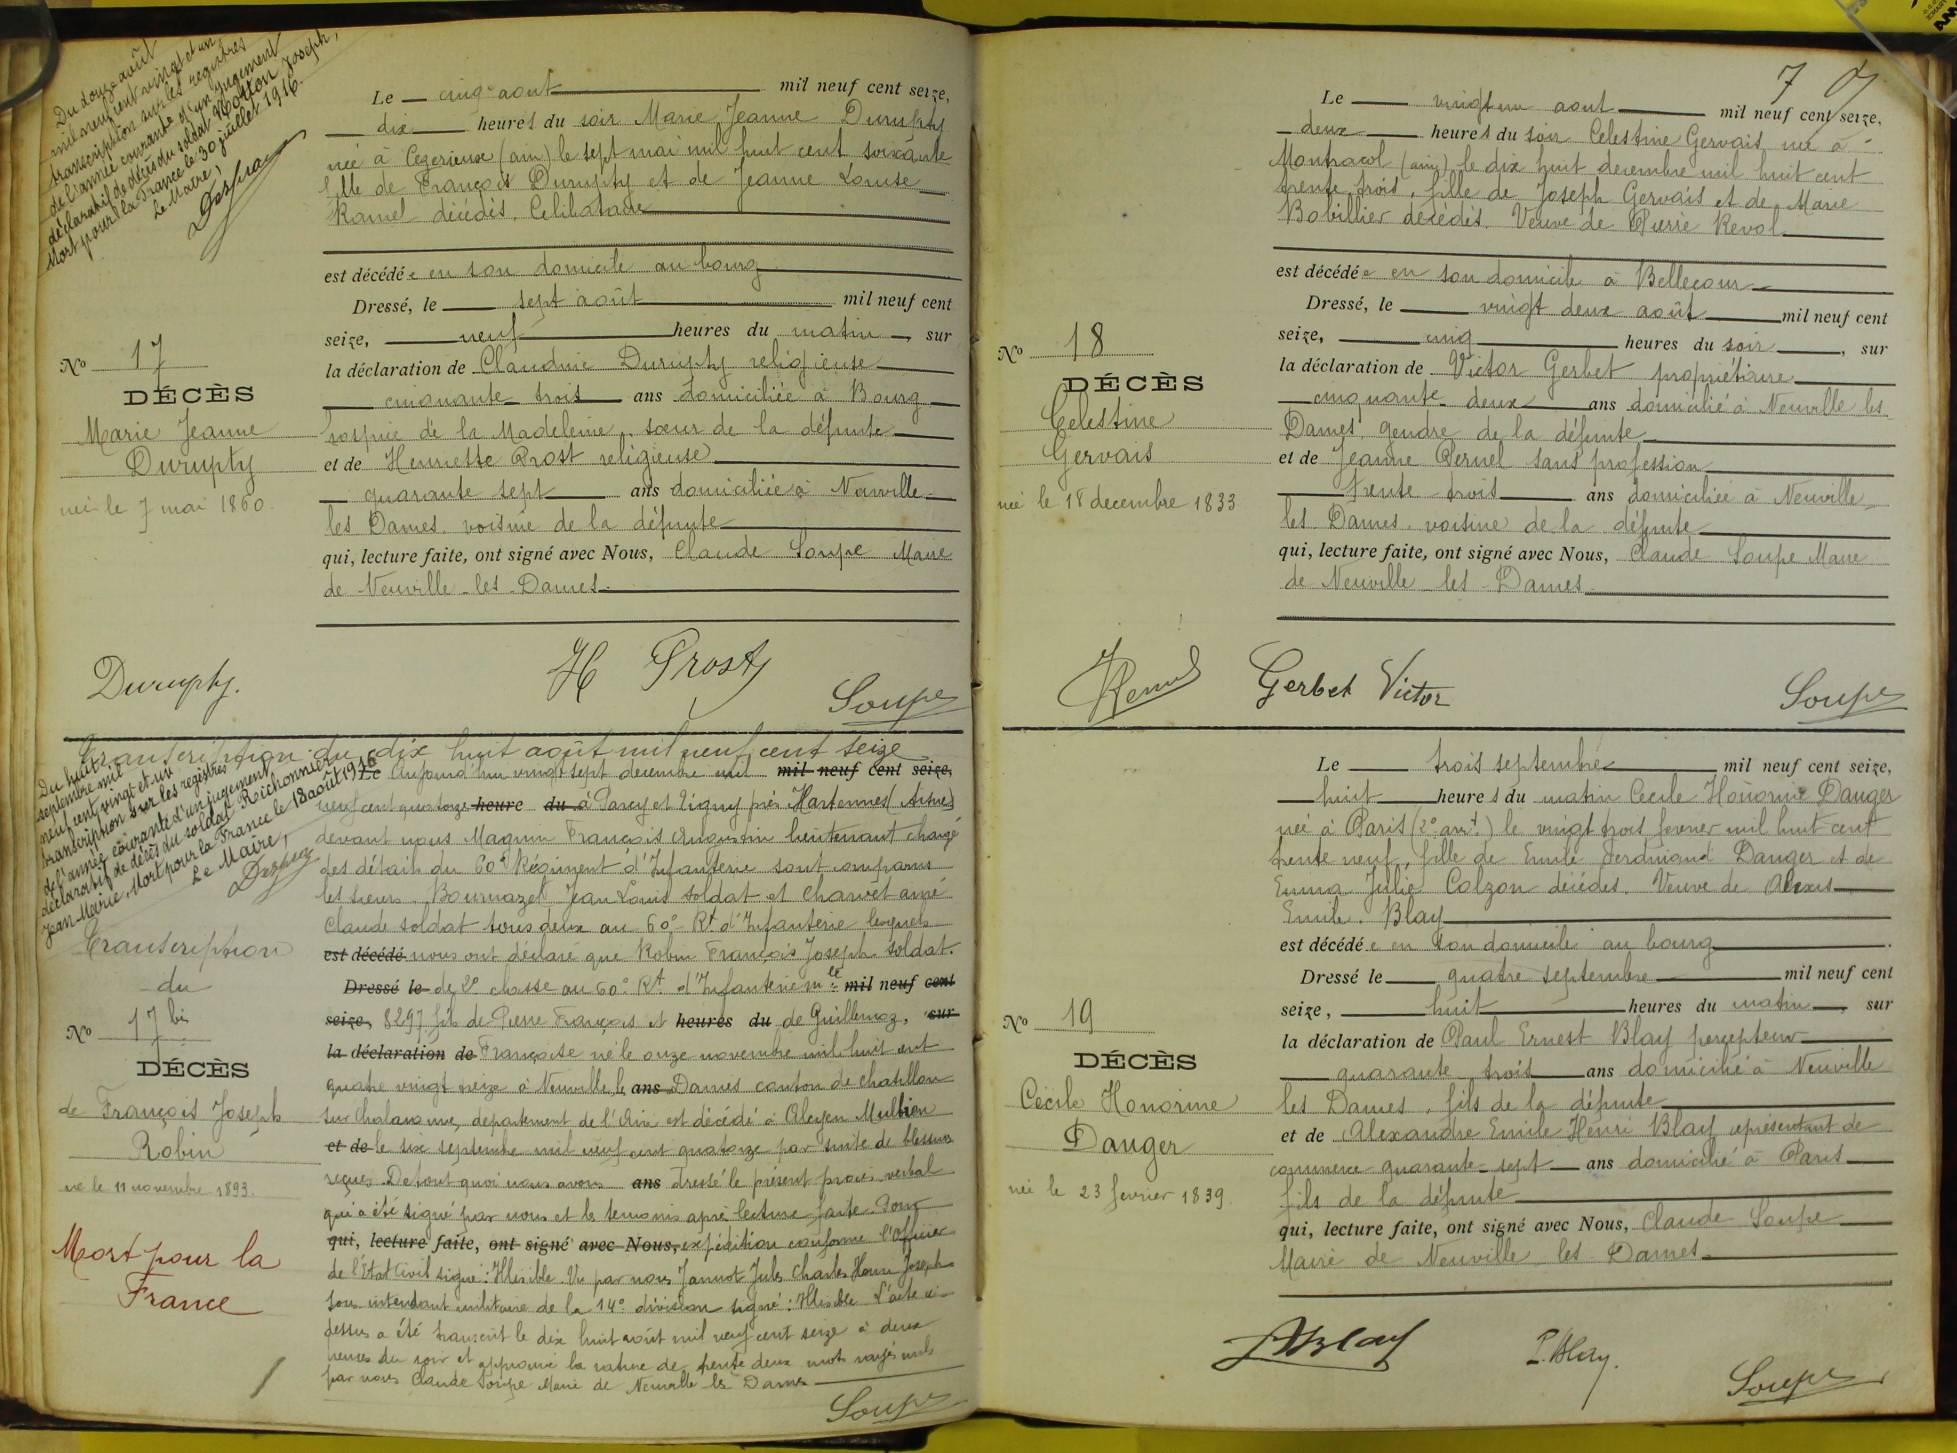 Du douze août
mil neuf cent vingt et un
transcription sur les registres
de l'année courante d'un jugement
déclaratif de décès du soldat Joseph,
Mort pour la France le 30 juillet 1916.
Le Maire,
Le cinq août mil neuf cent seize,
dix heures du soir Marie Jeanne Durupty
née à (ain) le sept mai mil huit cent soixante
fille de François Durupty et de Jeanne Louise
Ramel décédés. Célibataire
est décédée en son domicile au bourg
Dressé, le sept août mil neuf cent
seize, neuf heures du matin, sur
la déclaration de Claudine Durupty religieuse
cinquante trois ans domiciliée à Bourg
hospice de la Madeleine, sœur de la défunte
et de Henriette Prost religieuse
quarante sept ans domiciliée à Neuville
les Dames. voisine de la défunte
qui, lecture faite, ont signé avec Nous, Claude Soupe Maire
de Neuville-les-Dames.
No 17
DÉCÈS
Marie Jeanne
Durupty
née le 7 mai 1860.
Durupty. H Prost Soupe
Transcription du dix huit août mil neuf cent seize
Du huit
septembre mil
neuf cent vingt et un
transcription sur les registres
de l'année courante d'un jugement
déclaratif de décès du soldat Richonnier
Jean Marie, Mort pour la France le 18 août 1916
Le Maire,
Le Aujourd'hui vingt sept decembre mil mil neuf cent seize,
neuf cent quatorze heure du à Parcy et Tigny près Hartennes (Aisne)
devant nous Magnin François Augustin lieutenant chargé
des détails du 60e Régiment d'Infanterie sont comparus
les sieurs Bournazet Jean Louis soldat et Charvet aimé
Claude soldat tous deux au 60e Rt d'Infanterie lesquels
est décédé nous ont déclaré que Robin François Joseph soldat.
Dressé le de 2e classe au 60e Rt d'Infanterie mle mil neuf cent
seize, 8297 fils de Pierre François et heures du de Guillemoz, sur
la déclaration de Françoise né le onze novembre mil huit cent
quatre vingt treize à Neuville les ans Dames canton de Chatillon
sur Chalaronne, departement de l'Ain est décédé à Acy en Multien
et de le six septembre mil neuf cent quatorze par suite de blessures
reçues. De tout quoi nous avons ans dressé le présent procès verbal
qui a été signé par nous et les temoins après lecture faite. Pour
qui, lecture faite, ont signé avec Nous, expédition conforme l'Officier
de l'Etat Civil signé: Illisible. Vu par nous Jannot Jules Charles Henri Joseph
sous intendant militaire de la 14e division signé: Illisible L'acte ci-
dessus a été transcrit le dix huit août mil neuf cent seize à deux
heures du soir et approuvé la rature de trente deux mots rayés nuls
par nous Claude Soupe Maire de Neuville les Dames
Transcription
du
No 17 bis
DÉCÈS
de François Joseph
Robin
né le 11 novembre 1893.
Mort pour la
France
Soupe
7
Le vingt un août mil neuf cent seize,
deux heures du soir Celestine Gervais née à
Montracol (ain) le dix huit decembre mil huit cent
trente trois, fille de Joseph Gervais et de Marie
Bobillier décédés. Veuve de Pierre Revol
est décédée en son domicile à Bellecour
Dressé, le vingt deux août mil neuf cent
seize, cinq heures du soir, sur
la déclaration de Victor Gerbet propriétaire
cinquante deux ans domicilié à Neuville les
Dames. gendre de la défunte
et de Jeanne Pernel sans profession
trente trois ans domiciliée à Neuville
les Dames. voisine de la défunte
qui, lecture faite, ont signé avec Nous, Claude Soupe Maire
de Neuville les Dames
No 18
DÉCÈS
Celestine
Gervais
née le 18 decembre 1833
Gerbet Victor Soupe
Le trois septembre mil neuf cent seize,
huit heures du matin Cecile Honorine Danger
née à Paris (2e arrt) le vingt trois fevrier mil huit cent
trente neuf, fille de Emile Ferdinand Danger et de
Emma Julie Colzon décédés. Veuve de Alexis
Emile Blay
est décédée en son domicile au bourg.
Dressé le quatre septembre mil neuf cent
seize, huit heures du matin, sur
la déclaration de Paul Ernest Blay percepteur
quarante trois ans domicilié à Neuville
les Dames, fils de la défunte
et de Alexandre Emile Henri Blay représentant de
commerce quarante-sept ans domicilié à Paris
fils de la défunte
qui, lecture faite, ont signé avec Nous, Claude Soupe
Maire de Neuville les Dames.
No 19
DÉCÈS
Cécile Honorine
Danger
née le 23 fevrier 1839.
ABlay P. Blay. Soupe